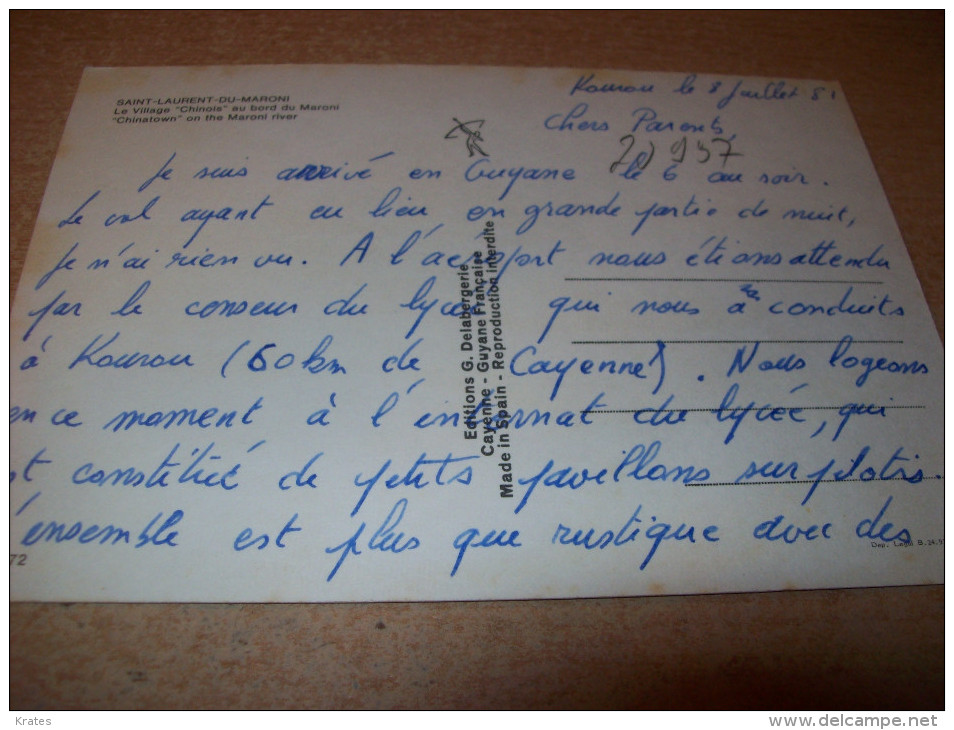 SAINT-LAURENT-DU-MARONI
Le Village "Chinois" au bord du Maroni
"Chinatown" on the Maroni river
Kourou le 8 Juillet 81
Chers Parents,
Je suis arrivé en Guyane le 6 au soir.
Le vol ayant eu lieu en grande partie de nuit,
Je n'ai rien vu. A l'aéroport nous étions attendu
par le censeur du lycée qui nous a conduits
à Kourou (60 km de Cayenne). Nous logeons
en ce moment à l'internat du lycée, qui
st constitué de petits pavillons sur pilotis.
'ensemble est plus que rustique avec des
Editions G. Delabergerie
Cayenne - Guyane Française
Made in Spain - Reproduction interdite
72
Dep. Legal B.
Krates
delcampe.net